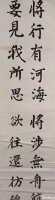 將行有河海將涉無舟
要見我所思欲往還彷